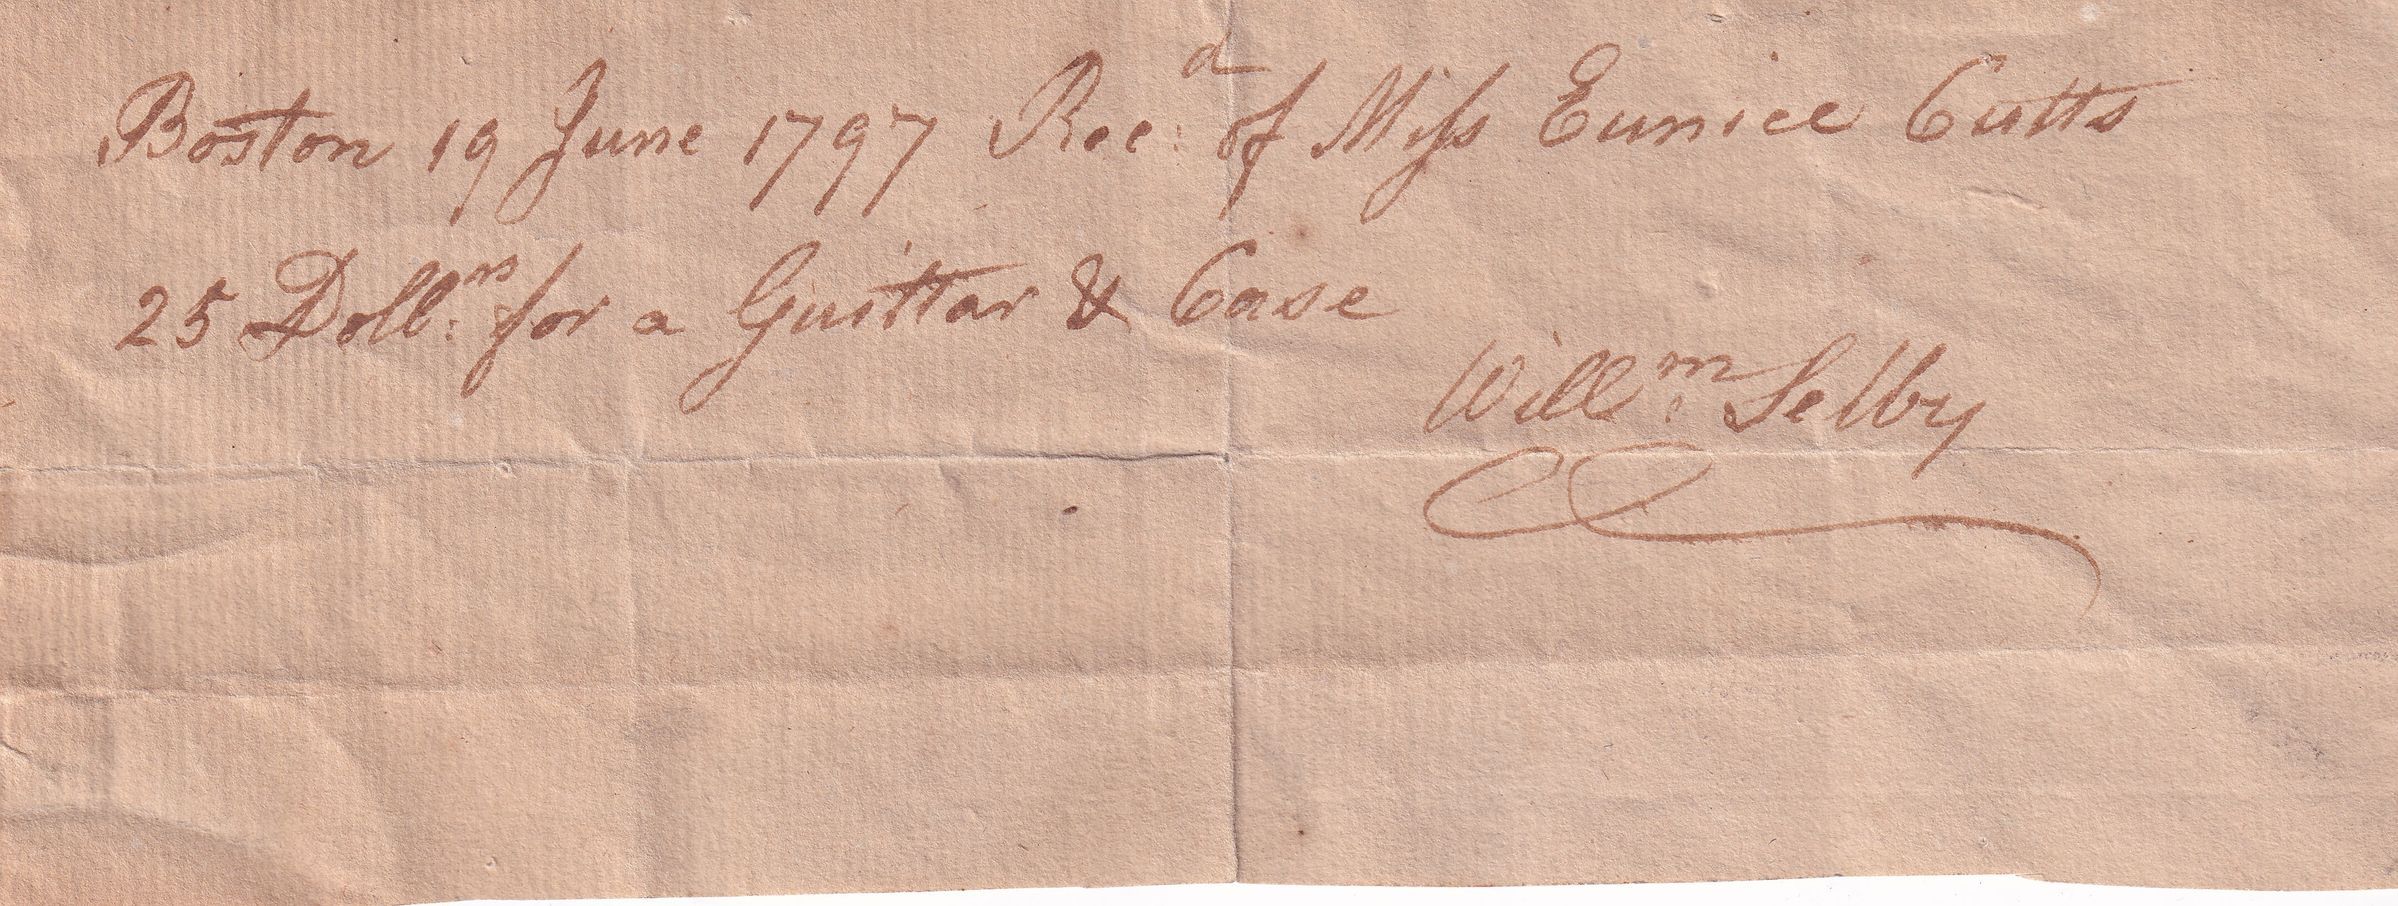 Boston 19 June 1797 Rec:d of Miſs Eunice Cutts
25 Doll:rs for a Guittar & Case
Will:m Selby